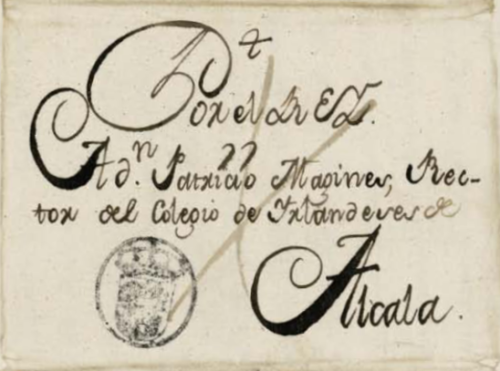 Por el REY.
A dⁿ. Patricio Magines, Rec-
tor del Colegio de Yrlandeses de
Alcala.